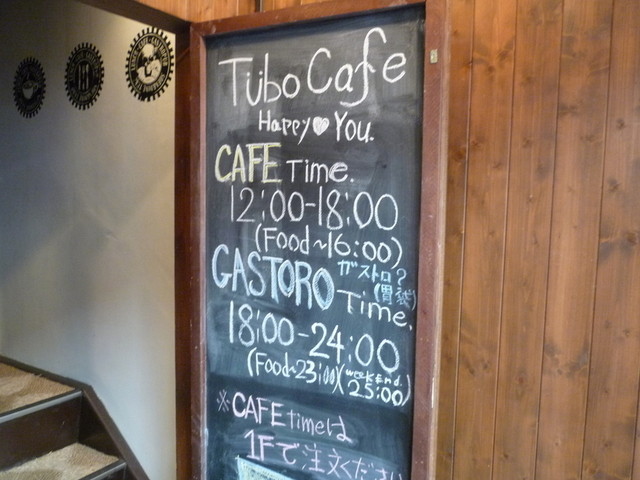 Tübo Cafe
Happy♥You.
CAFE Time.
12:00-18:00
(Food~16:00)
GASTORO ガストロ?
(胃袋)
Time.
18:00-24:00
(Food~23:00)(weekend.
25:00)
※CAFEtimeは
1Fで注文ください